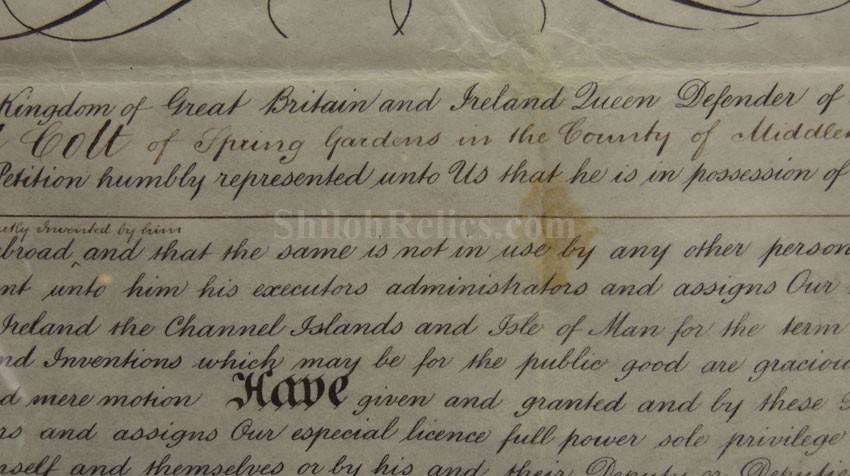 Kingdom of Great Britain and Ireland Queen Defender of
Colt of Spring Gardens in the County of Middle
Petition humbly represented unto Us that he is in possession of
ShilohRelics.com
Invented by him
abroad and that the same is not in use by any other person
unto him his executors administrators and assigns Our
Ireland the Channel Islands and Isle of Man for the term
and Inventions which may be for the public good are gracious
mere motion Have given and granted and by these
rs and assigns Our especial licence full power sole privilege
mself and themselves or by his and their Deputy or